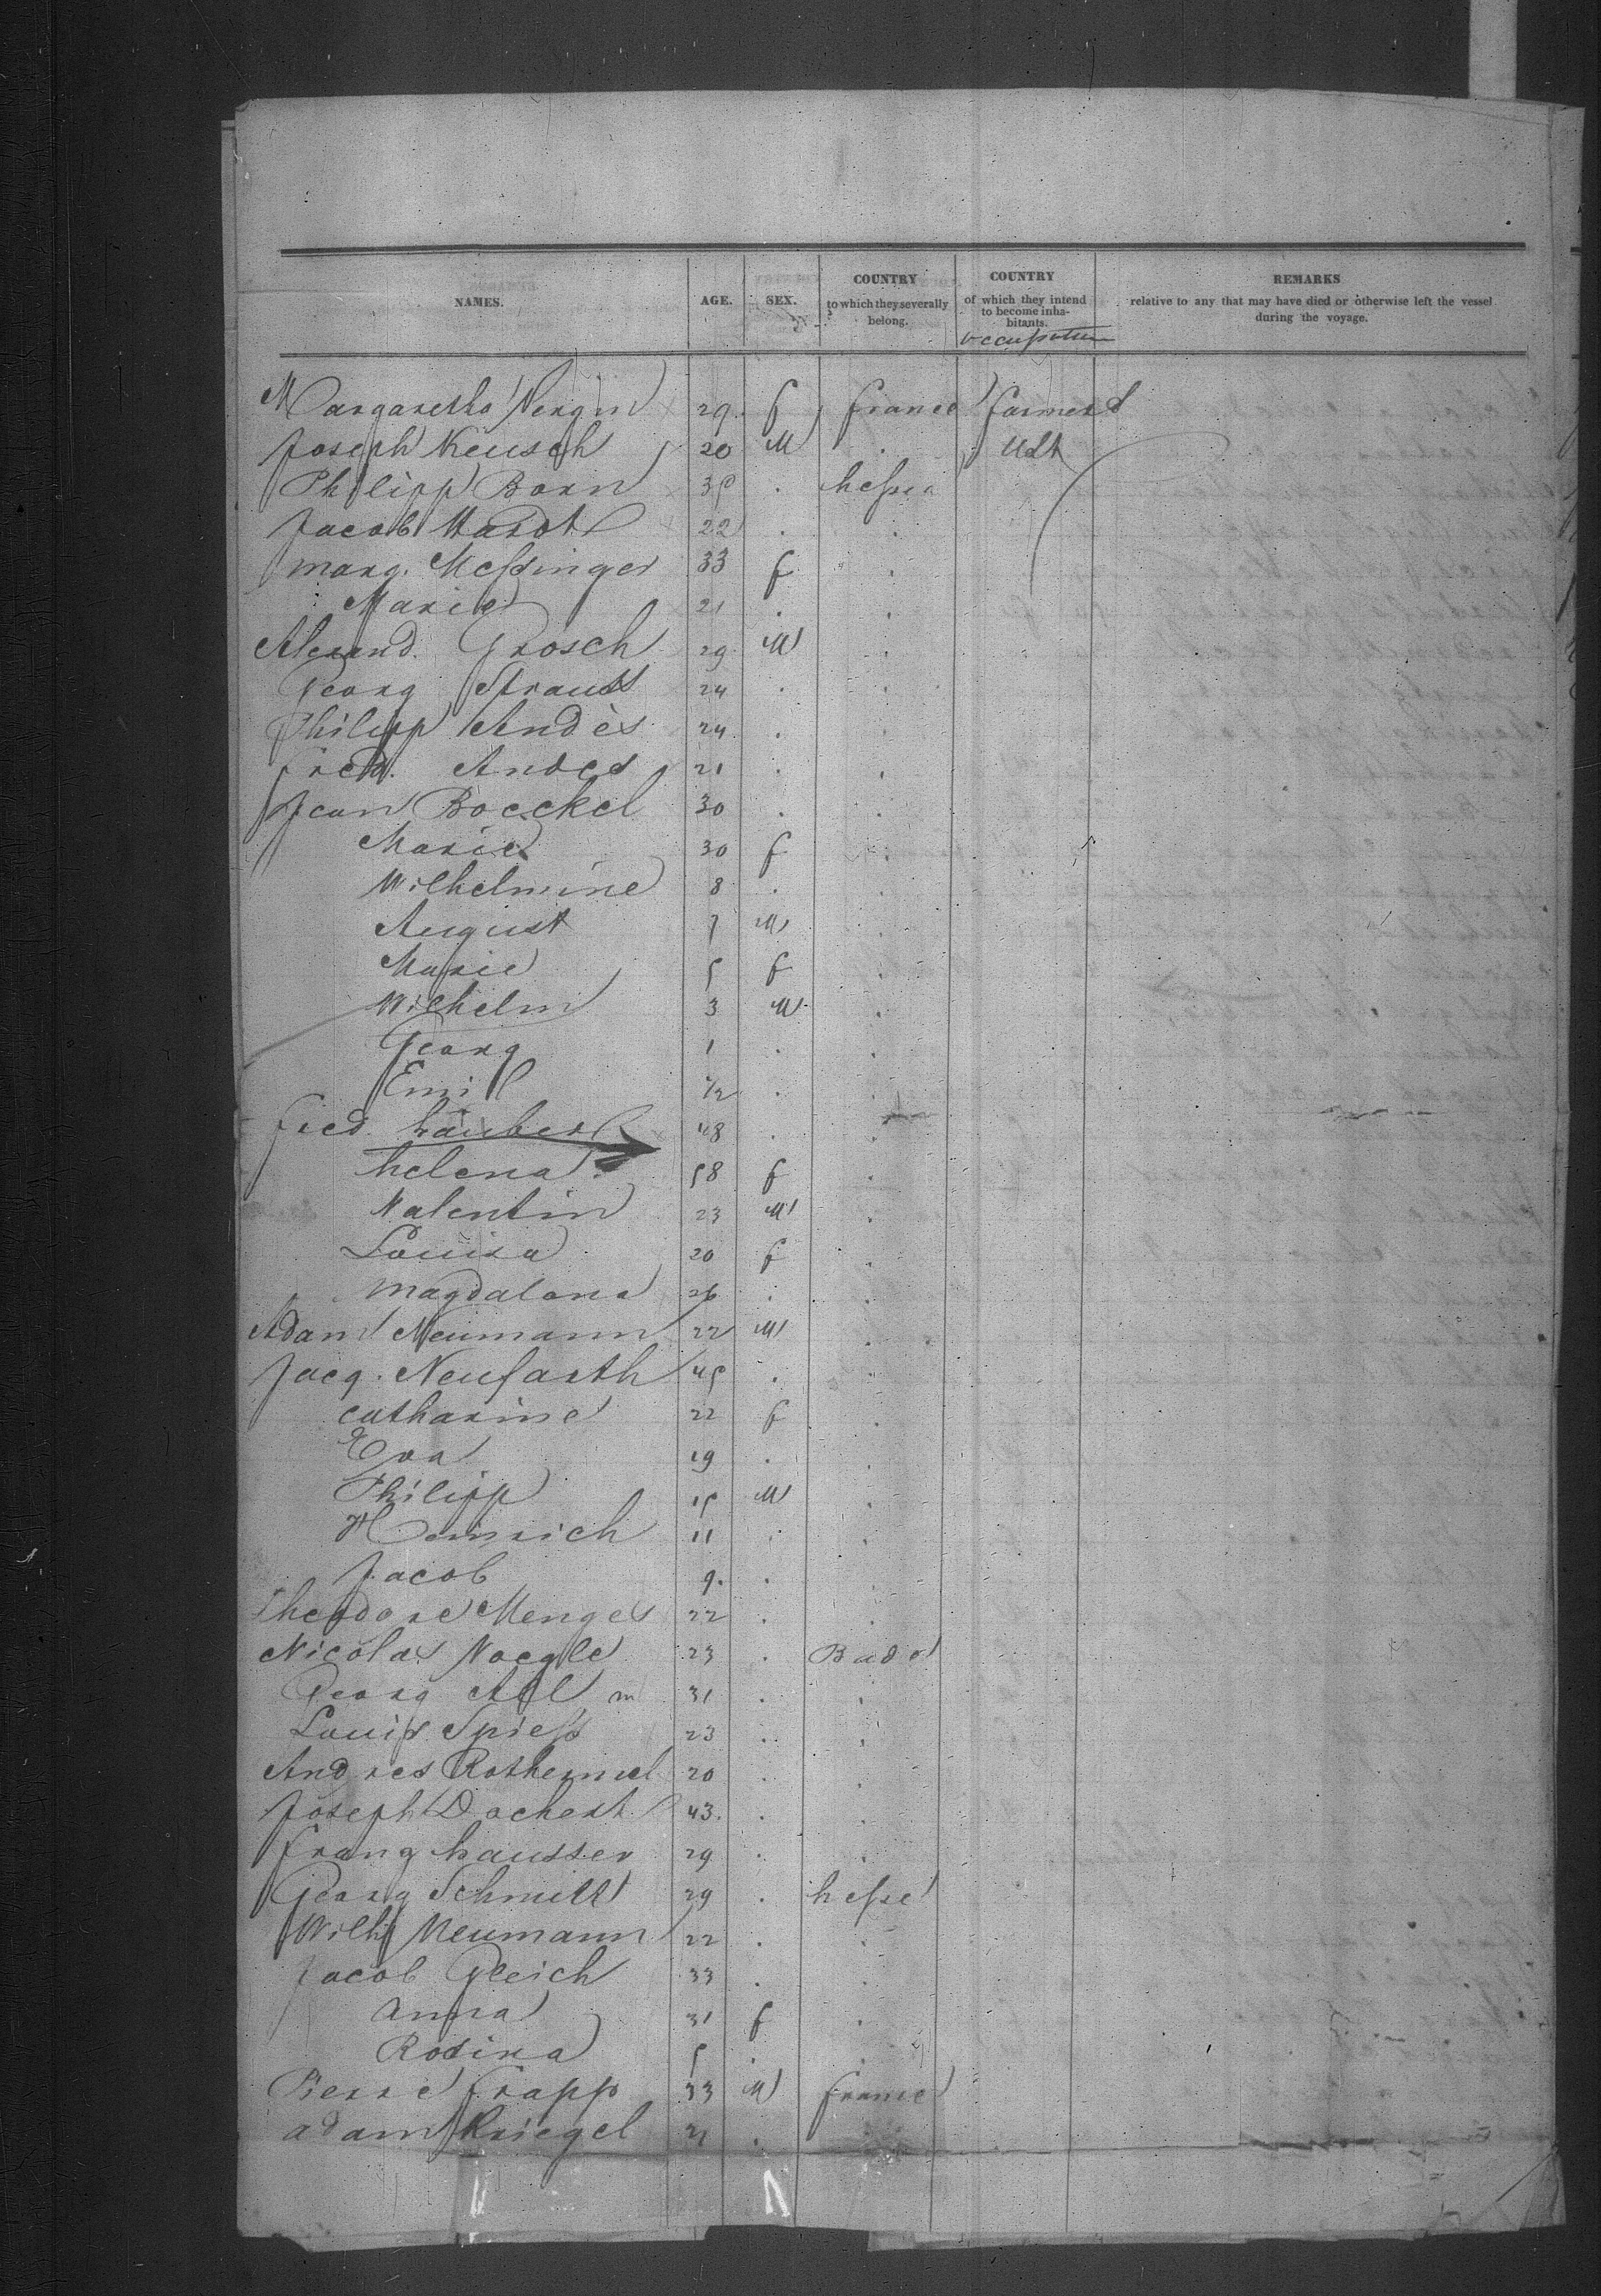 NAMES. AGE. SEX. COUNTRY to which they severally belong. COUNTRY of which they intend to become inhabitants. occupation REMARKS relative to any that may have died or otherwise left the vessel during the voyage.
Margaretha 29 f france farmers
Joseph Keusch 20 M . Udt
Philipp Born 35 . hessia
Jacob Hardt 22 . .
marg. Messinger 33 f .
Marie 21 . .
Alexand. Grosch 29 M .
Georg Strauss 24 . .
Philipp Andès 24 . .
fred. Andes 21 . .
Jean Boeckel 30 . .
Marie 30 f .
Wilhelmine 8 . .
August 7 M .
Marie 5 f .
Wilhelm 3 M .
Georg 1 . .
Emil 1/2 . .
fred. häuber 48 . .
helena 58 f .
Valentin 23 M .
Louisa 20 f .
magdalena 26 . .
Adam Neumann 22 M .
Jacq. Neufarth 45 . .
catharine 22 f .
Eva 19 . .
Philipp 15 M .
Heinrich 11 . .
Jacob 9. . .
Theodore Menges 22 . .
Nicolas Noegle 23 . Bade
Georg Abl m 31 . .
Louis Spiess 23 . .
Andres Rothermel 20 . .
Joseph Dochert 43. . .
franz hausser 29 . .
Georg Schmitt 29 . hesse
Wilh Neumann 22 . .
Jacob Gleich 33 . .
anna 31 f .
Rosina 5 . .
Pierre frapp 33 M france
adam Kriegel 21 . .